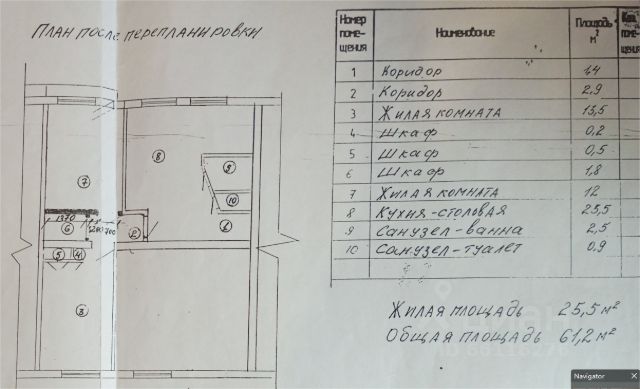 План после перепланировки
Номер помещения Наименование Площадь м²
1 Коридор 1,4
2 Коридор 2,9
3 Жилая комната 13,5
4 Шкаф 0,2
5 Шкаф 0,5
6 Шкаф 1,8
7 Жилая комната 12
8 Кухня-столовая 25,5
9 Санузел-ванна 2,5
10 Санузел-туалет 0,9
Жилая площадь 25,5 м²
Общая площадь 61,2 м²
8
9
7
10
1370
6
2
5
4
3
Navigator